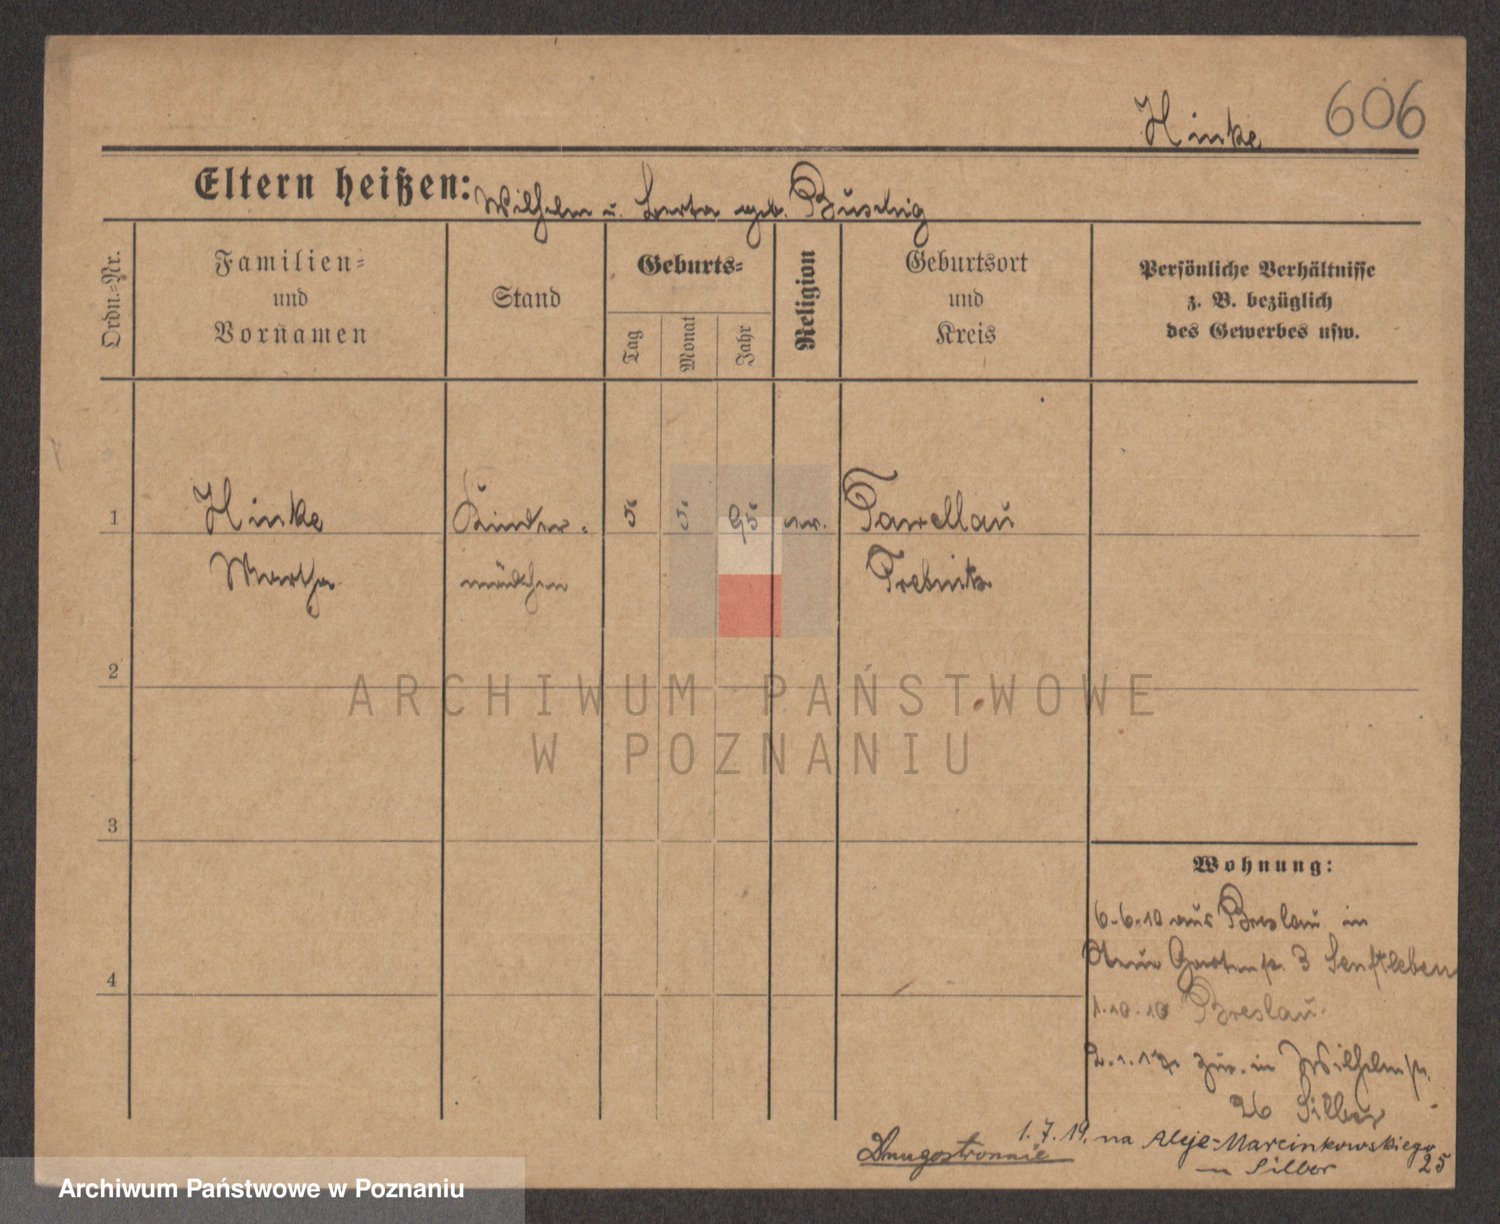 606
Hinke
Eltern heißen: Wilhelm u. Berta geb. Buschig
Ordn.-Nr.
Familien-
und
Vornamen
Stand
Geburts-
Tag
Monat
Jahr
Religion
Geburtsort
und
Kreis
Persönliche Verhältnisse
z. B. bezüglich
des Gewerbes usw.
1
Hinke
Kinder-
5
5
95
ev.
Pawellau
Martha
mädchen
Trebnitz
2
ARCHIWUM PAŃSTWOWE
W POZNANIU
3
Wohnung:
6.6.10 aus Breslau in
Neue Gartenstr. 3 Senftleben
4
1.10.10 Breslau.
2.1.17 zur. in Wilhelmstr.
26 Silber
1.7.19. na Aleje-Marcinkowskiego
Drugostronnie
25
Silber
Archiwum Państwowe w Poznaniu